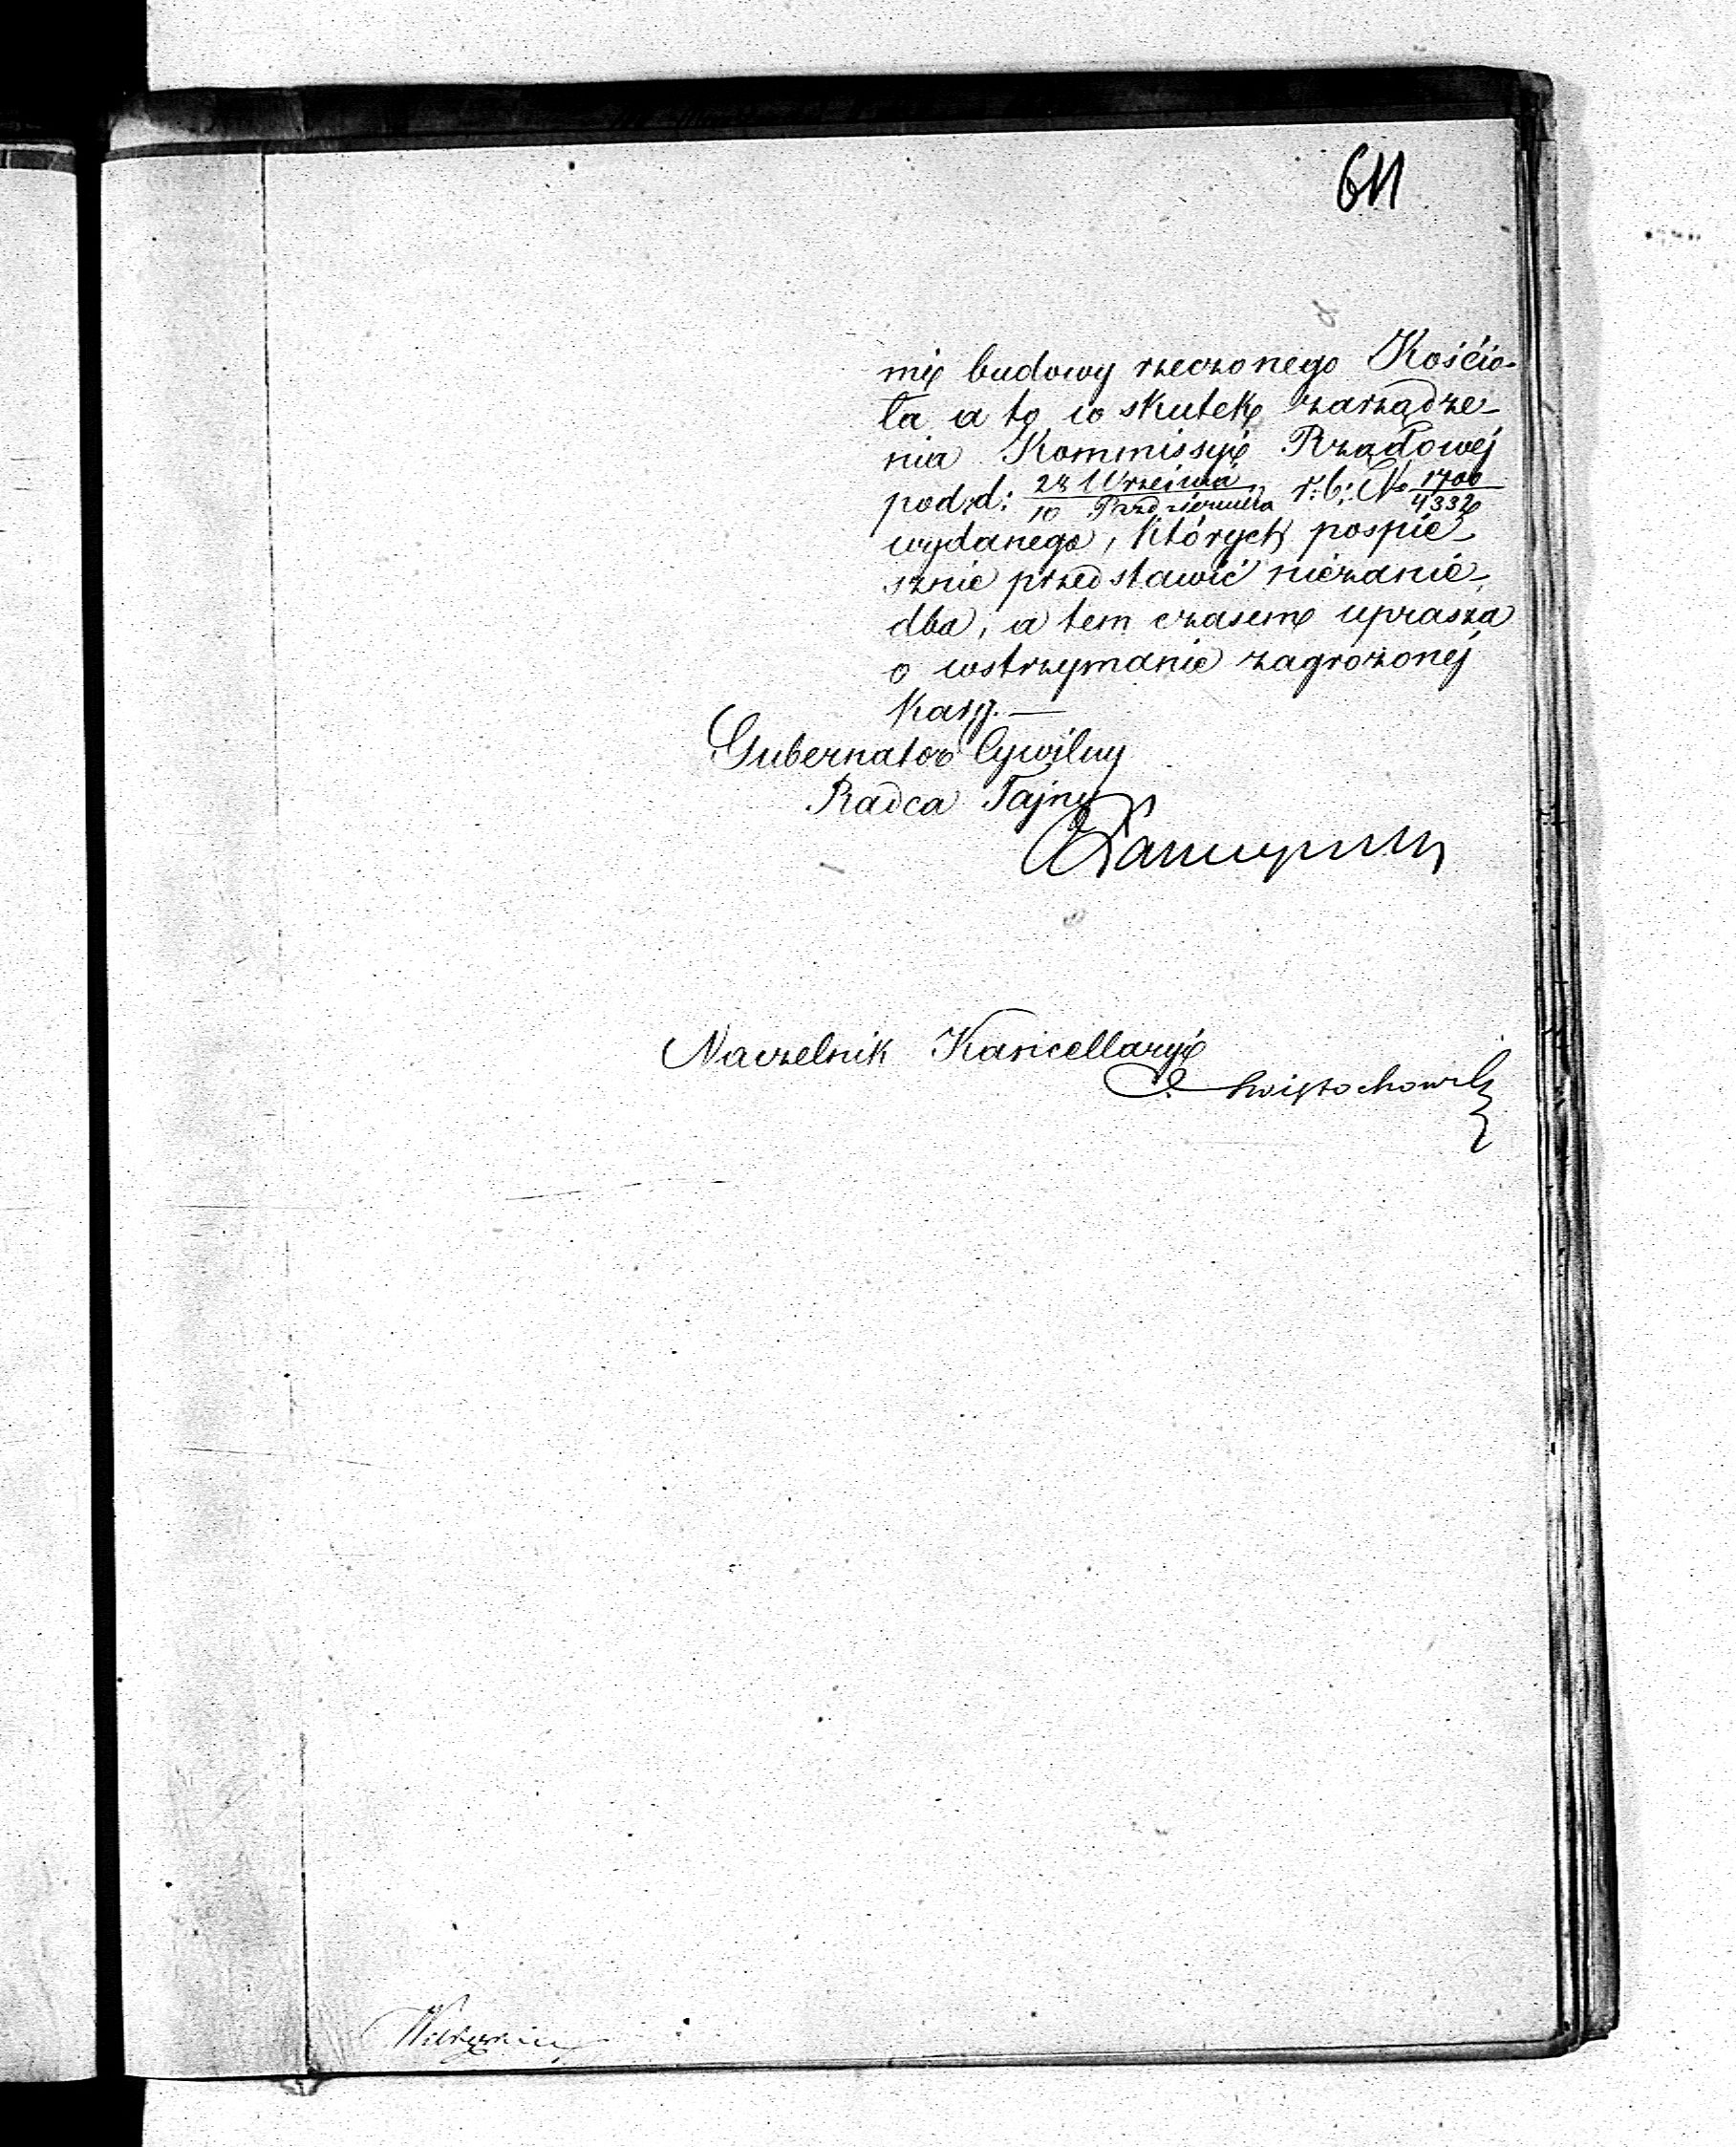 611
mię budowy rzeczonego Kościo-
ła a to w skutek zarządze-
nia Kommissyi Rządowej
pod d: 28 Września / 10 Października r. b. No 1700 / 4332
wydanego, których pospie-
sznie przedstawić niezanie-
dba, a tem czasem uprasza
o wstrzymanie zagrożonej
kary. —
Gubernator Cywilny
Radca Tajny
Naczelnik Kancellaryi
Świętochowski